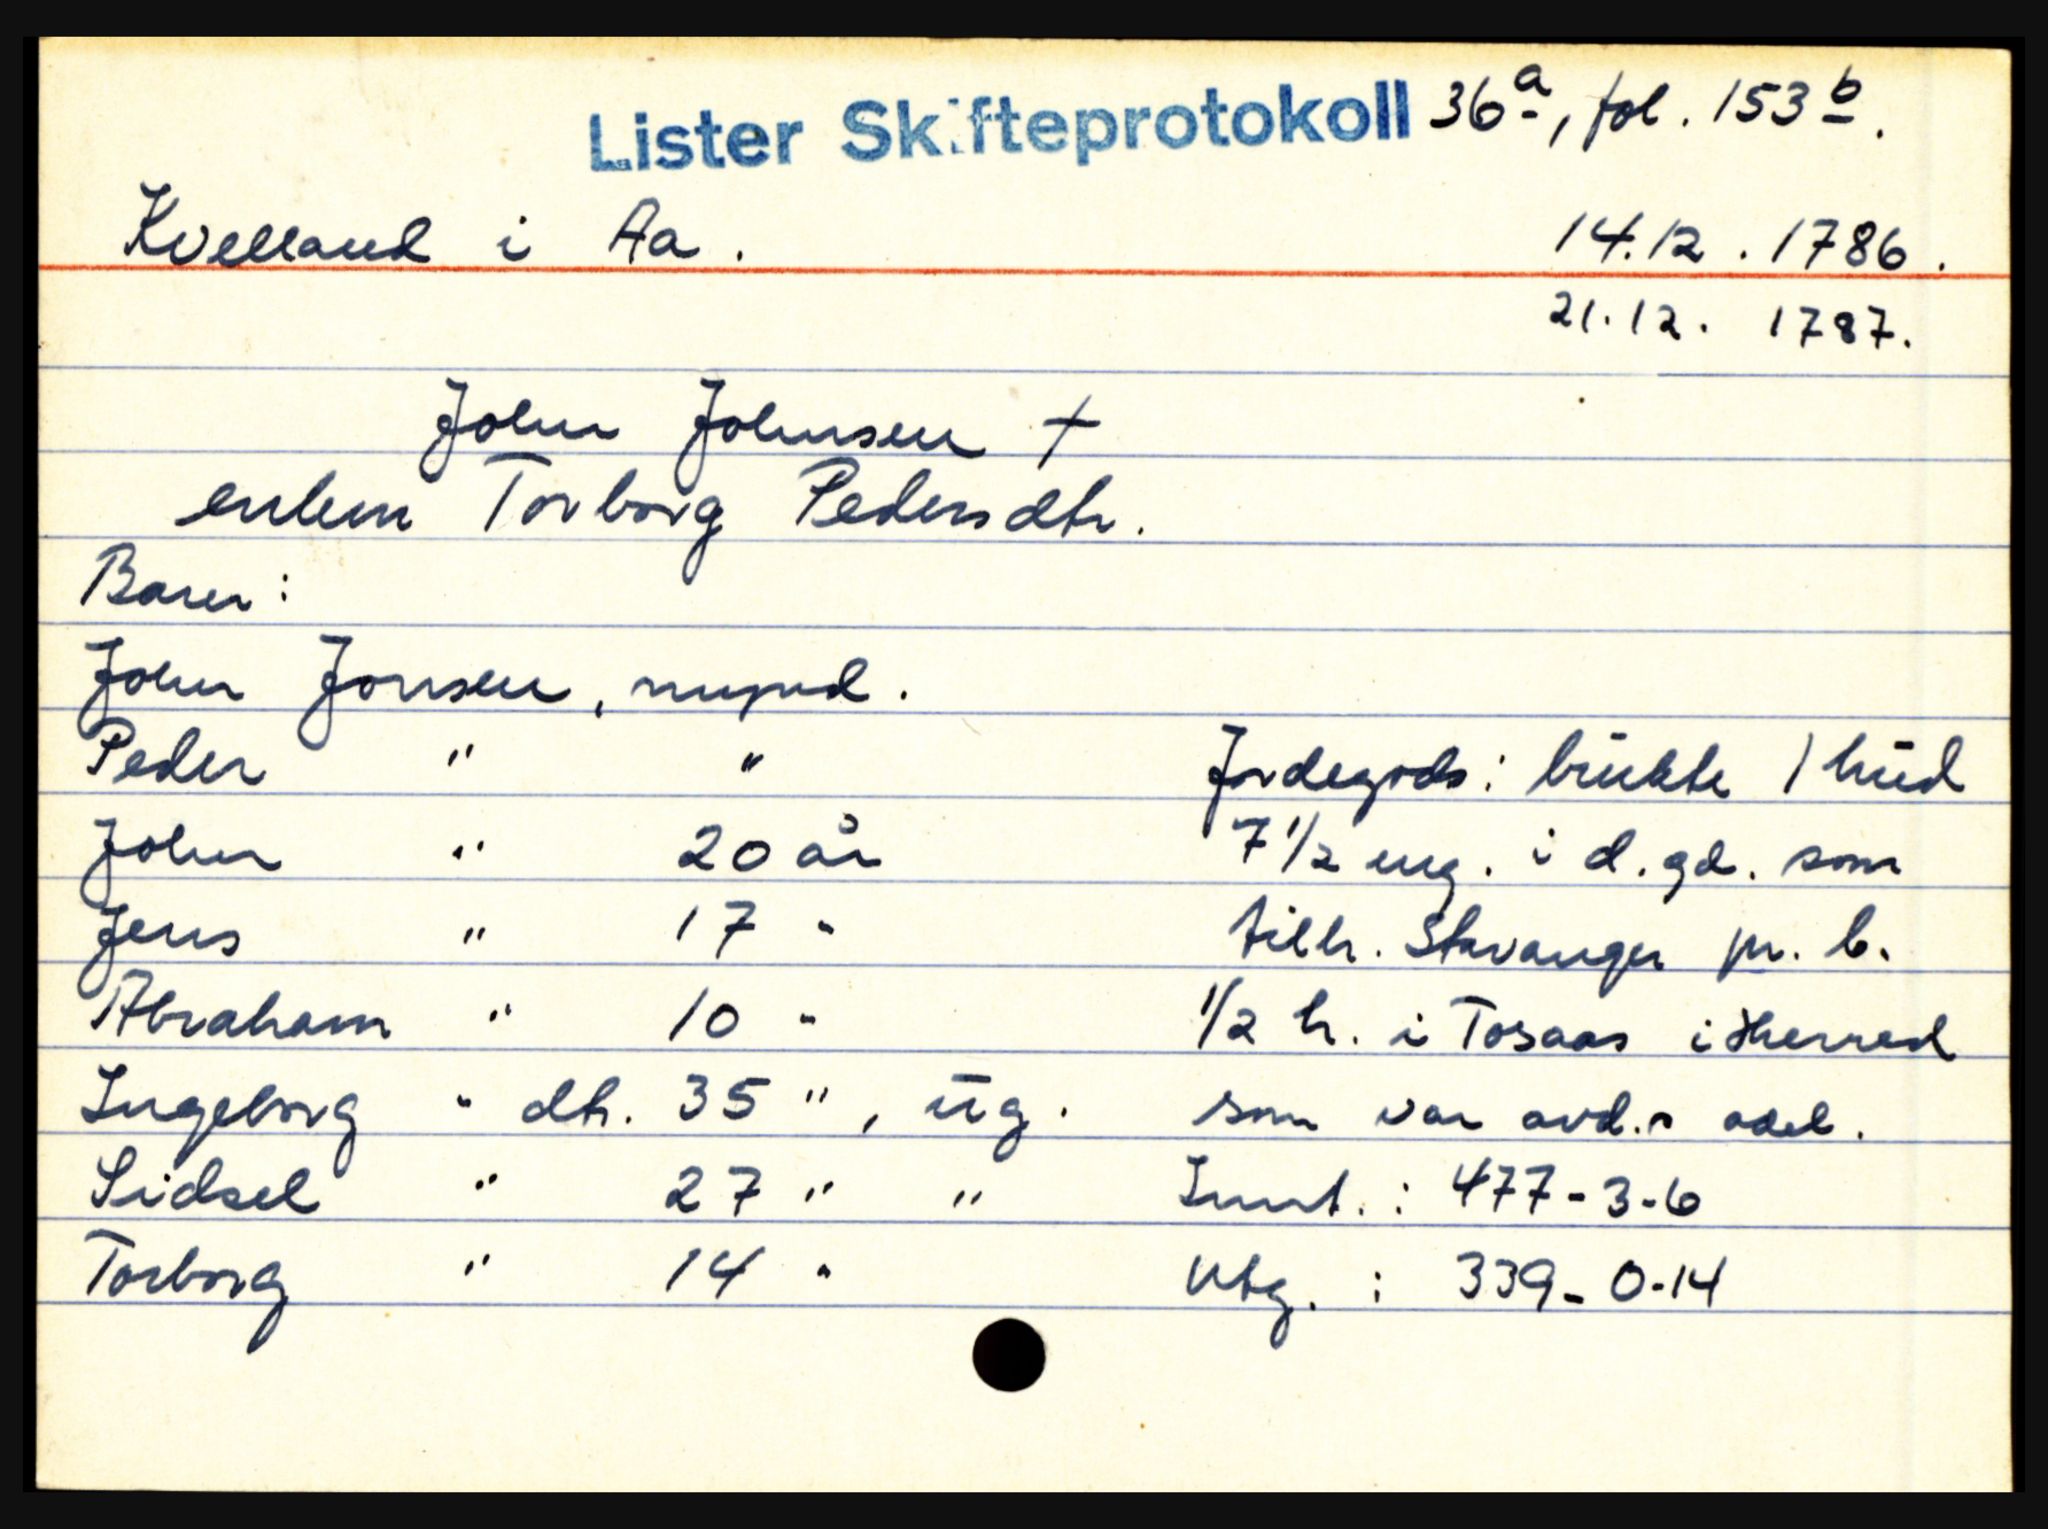 Lister Skifteprotokoll 36a, fol. 153b.
Kvelland i Aa. 14.12.1786.
21.12. 1787.
John Johnsen †
enkem Torborg Pedersdtr.
Barn:
John Jonsen, mynd.
Peder " "
John " 20 år
Jens " 17 "
Abraham " 10 "
Ingeborg " dtr. 35 ", ug.
Sidsel " 27 " "
Torborg " 14 "
Jordegods: brukte 1 hud
7 1/2 eng. i d. gd. som
tilh. Stavanger pr. b.
1/2 h. i Tosaas i Herred
som var avd.s odel.
Innt.: 477-3-6
Utg.: 339-0-14